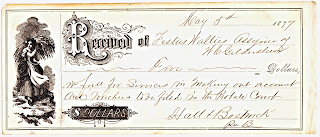 May 5th 1897
Received of Festus Walters Assignee of
W C Gildersleeve
Five Dollars,
In full for Services in Making out account
and Vouchers to be filed in the Probate Court
$ DOLLARS Hall & Bostwick